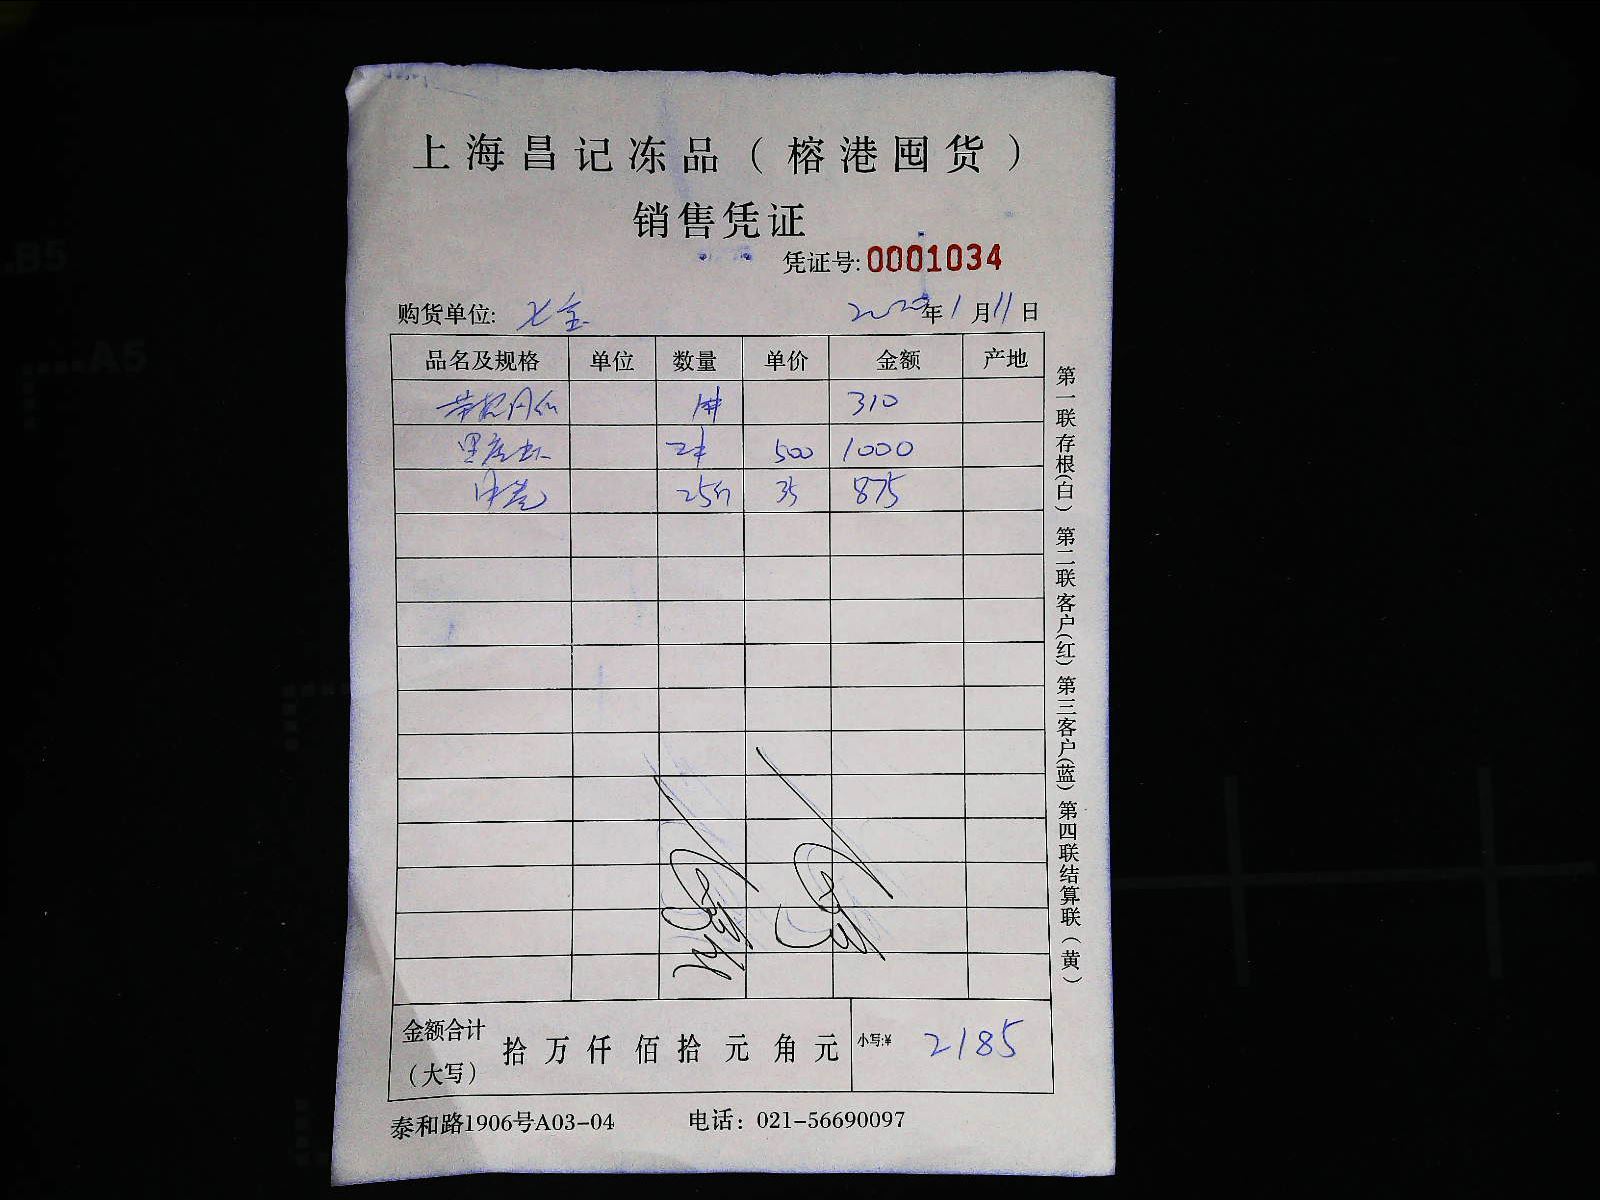 上海昌记冻品（榕港囤货）
销售凭证
凭证号:0001034
购货单位: 七宝 年1月11日
品名及规格 单位 数量 单价 金额 产地
310
500 1000
35 875
金额合计（大写） 拾 万 仟 佰 拾 元 角 元 小写:¥ 2185
泰和路1906号A03-04 电话：021-56690097
第一联存根(白) 第二联客户(红) 第三客户(蓝) 第四联结算联(黄)
B5
A5